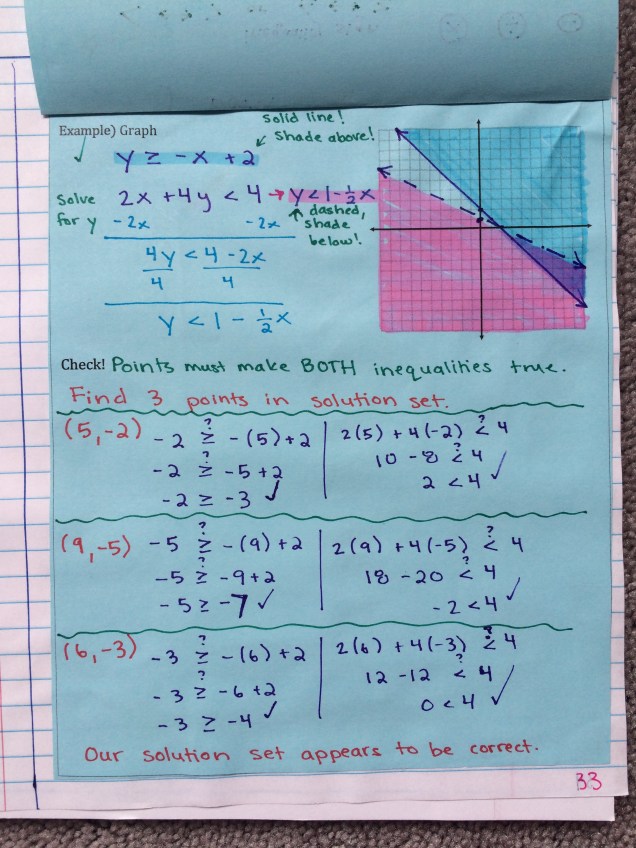 Example) Graph
Solid line!
Shade above!
y ≥ -x + 2
Solve for y
2x + 4y < 4 → y < 1 - 1/2 x
-2x -2x
dashed, shade below!
4y < 4 - 2x
4 4
y < 1 - 1/2 x
Check! Points must make BOTH inequalities true.
Find 3 points in solution set.
(5,-2)
-2 ≥? -(5)+2
-2 ≥? -5+2
-2 ≥ -3 ✓
2(5) + 4(-2) <? 4
10 - 8 <? 4
2 < 4 ✓
(9,-5)
-5 ≥? -(9)+2
-5 ≥? -9+2
-5 ≥ -7 ✓
2(9) + 4(-5) <? 4
18 - 20 <? 4
-2 < 4 ✓
(6,-3)
-3 ≥? -(6)+2
-3 ≥? -6+2
-3 ≥ -4 ✓
2(6) + 4(-3) <? 4
12 - 12 <? 4
0 < 4 ✓
Our solution set appears to be correct.
33